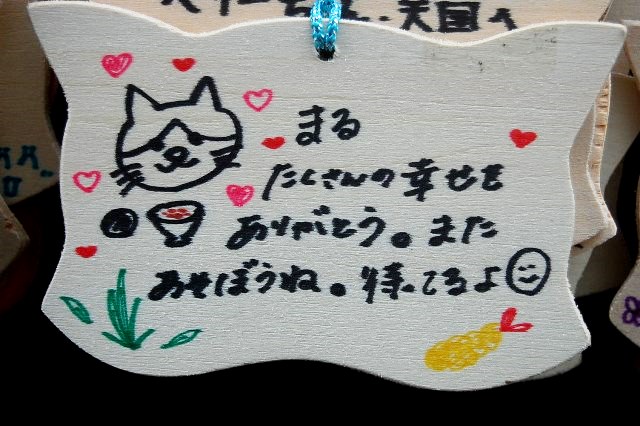 天国へ
まる
たくさんの幸せを
ありがとう。また
あそぼうね。待ってるよ